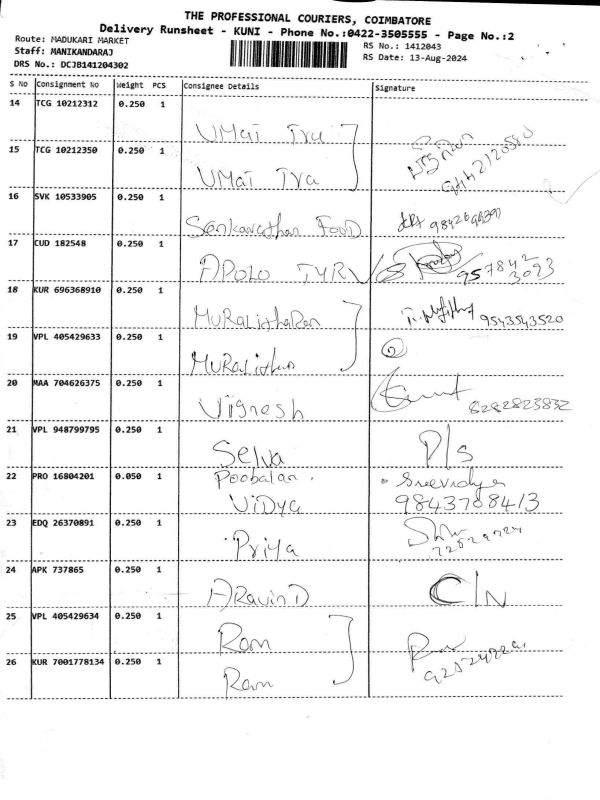 THE PROFESSIONAL COURIERS, COIMBATORE
Delivery Runsheet - KUNI - Phone No.:0422-3505555 - Page No.:2
Route: MADUKARI MARKET
RS No.: 1412043
Staff: MANIKANDARAJ
RS Date: 13-Aug-2024
DRS No.: DCJB141204302
S No Consignment No Weight PCS Consignee Details Signature
14 TCG 10212312 0.250 1
UMai Tra
15 TCG 10212350 0.250 1
UMai Tra
16 SVK 10533905 0.250 1
FOOD
17 CUD 182548 0.250 1
APOLO TYRV 957842 3093
18 KUR 696368910 0.250 1
MuRaLithaRan 9543543520
19 VPL 405429633 0.250 1
MuRaLithan
20 MAA 704626375 0.250 1
Vignesh 8282823832
21 VPL 948799795 0.250 1
Selva P/s
22 PRO 16804201 0.050 1
Poobalan. Sreevidya
ViDya 9843708413
23 EDQ 26370891 0.250 1
Priya
24 APK 737865 0.250 1
ARavinD C/N
25 VPL 405429634 0.250 1
Ram
26 KUR 7001778134 0.250 1
Ram